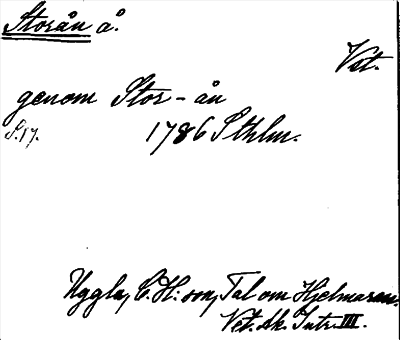 Storån å.
Vst.
genom Stor-ån
S.17. 1786 Sthlm.
Uggla, C. H:son, Tal om Hjelmaren.
Vet. Ak. Intr. III.